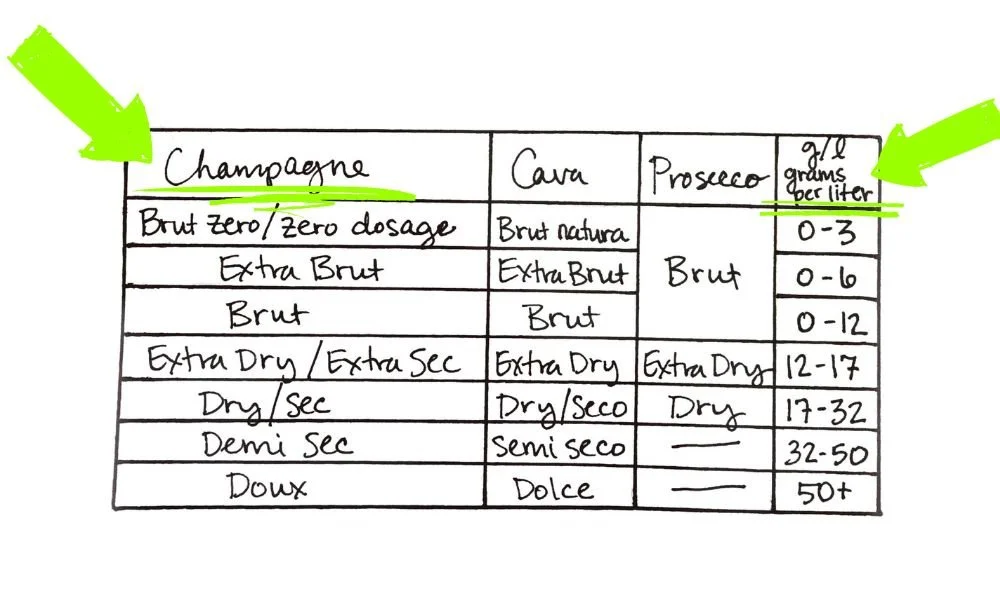 Champagne Cava Prosecco g/l grams per liter
Brut zero/zero dosage Brut natura 0-3
Extra Brut Extra Brut Brut 0-6
Brut Brut 0-12
Extra Dry/Extra Sec Extra Dry Extra Dry 12-17
Dry/Sec Dry/Seco Dry 17-32
Demi Sec Semi seco — 32-50
Doux Dolce — 50+